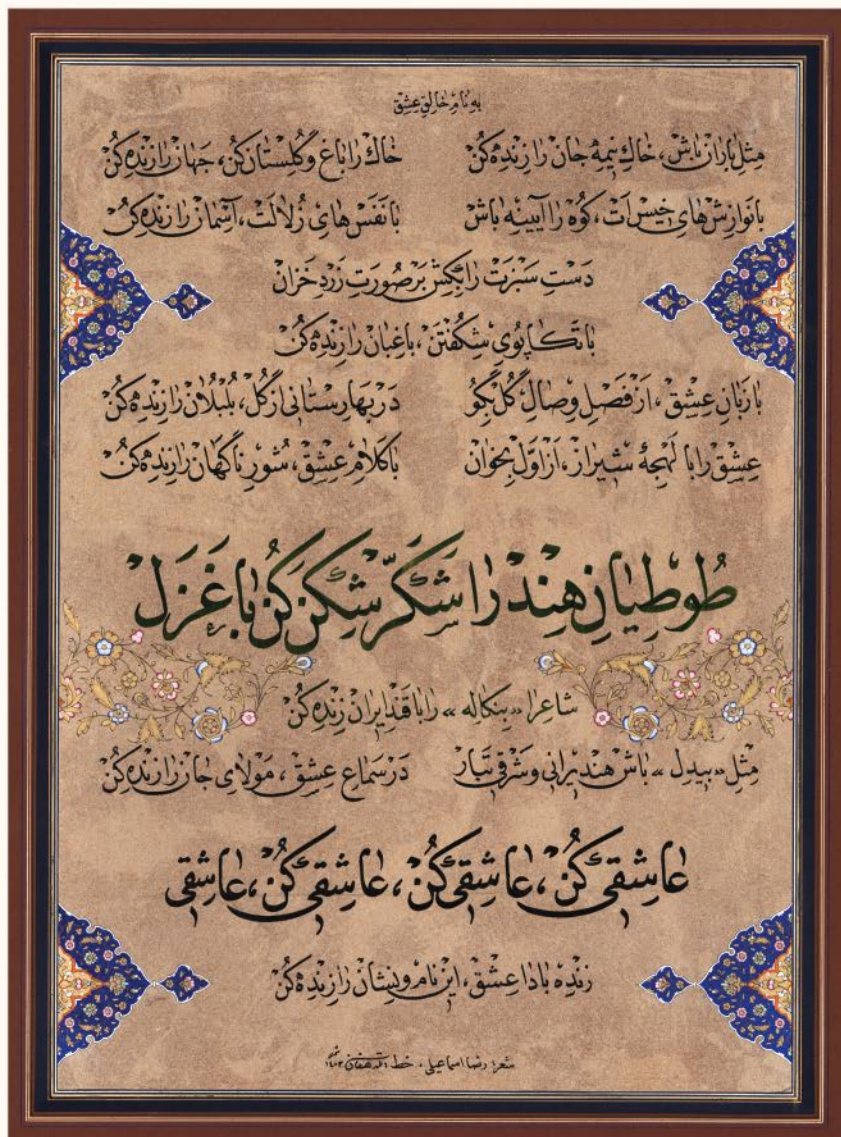 به نام خالق عشق
مِثلِ باران باش، خاکِ نیمه جان را زنده کُن خاک را باغ و گُلِستان کُن، جَهان را زنده کُن
با نَوازِش‌های خیس‌اَت، کوه را آیینه باش با نَفَس‌های زُلالَت، آسِمان را زنده کُن
دَستِ سَبزَت را بِکِش بَر صورَتِ زَردِ خَزان
با تَکاپویِ شِکُفتَن، باغبان را زنده کُن
با زبانِ عِشق، اَز فَصلِ وِصالِ گُل بِگو دَر بَهارِستانی از گُل، بُلبُلان را زنده کُن
عِشق را با لَهجهٔ شیراز، اَز اَوَّل بِخوان با کَلامِ عِشق، شورِ ناگهان را زنده کُن
طُوطِیانِ هِند را شَکَّر شِکَن کُن با غَزَل
شاعِرا «بَنگاله» را با قَندِ ایران زِنده کُن
مِثلِ «بیدِل» باش هِندیرانی و شَرقی تَبار دَر سَماعِ عِشق، مَولای جان را زنده کُن
عاشِقی کُن، عاشِقی کُن، عاشِقی کُن، عاشِقی
زنده بادا عِشق، این نام و نِشان را زِنده کُن
شعر: رضا اسماعیلی، خط